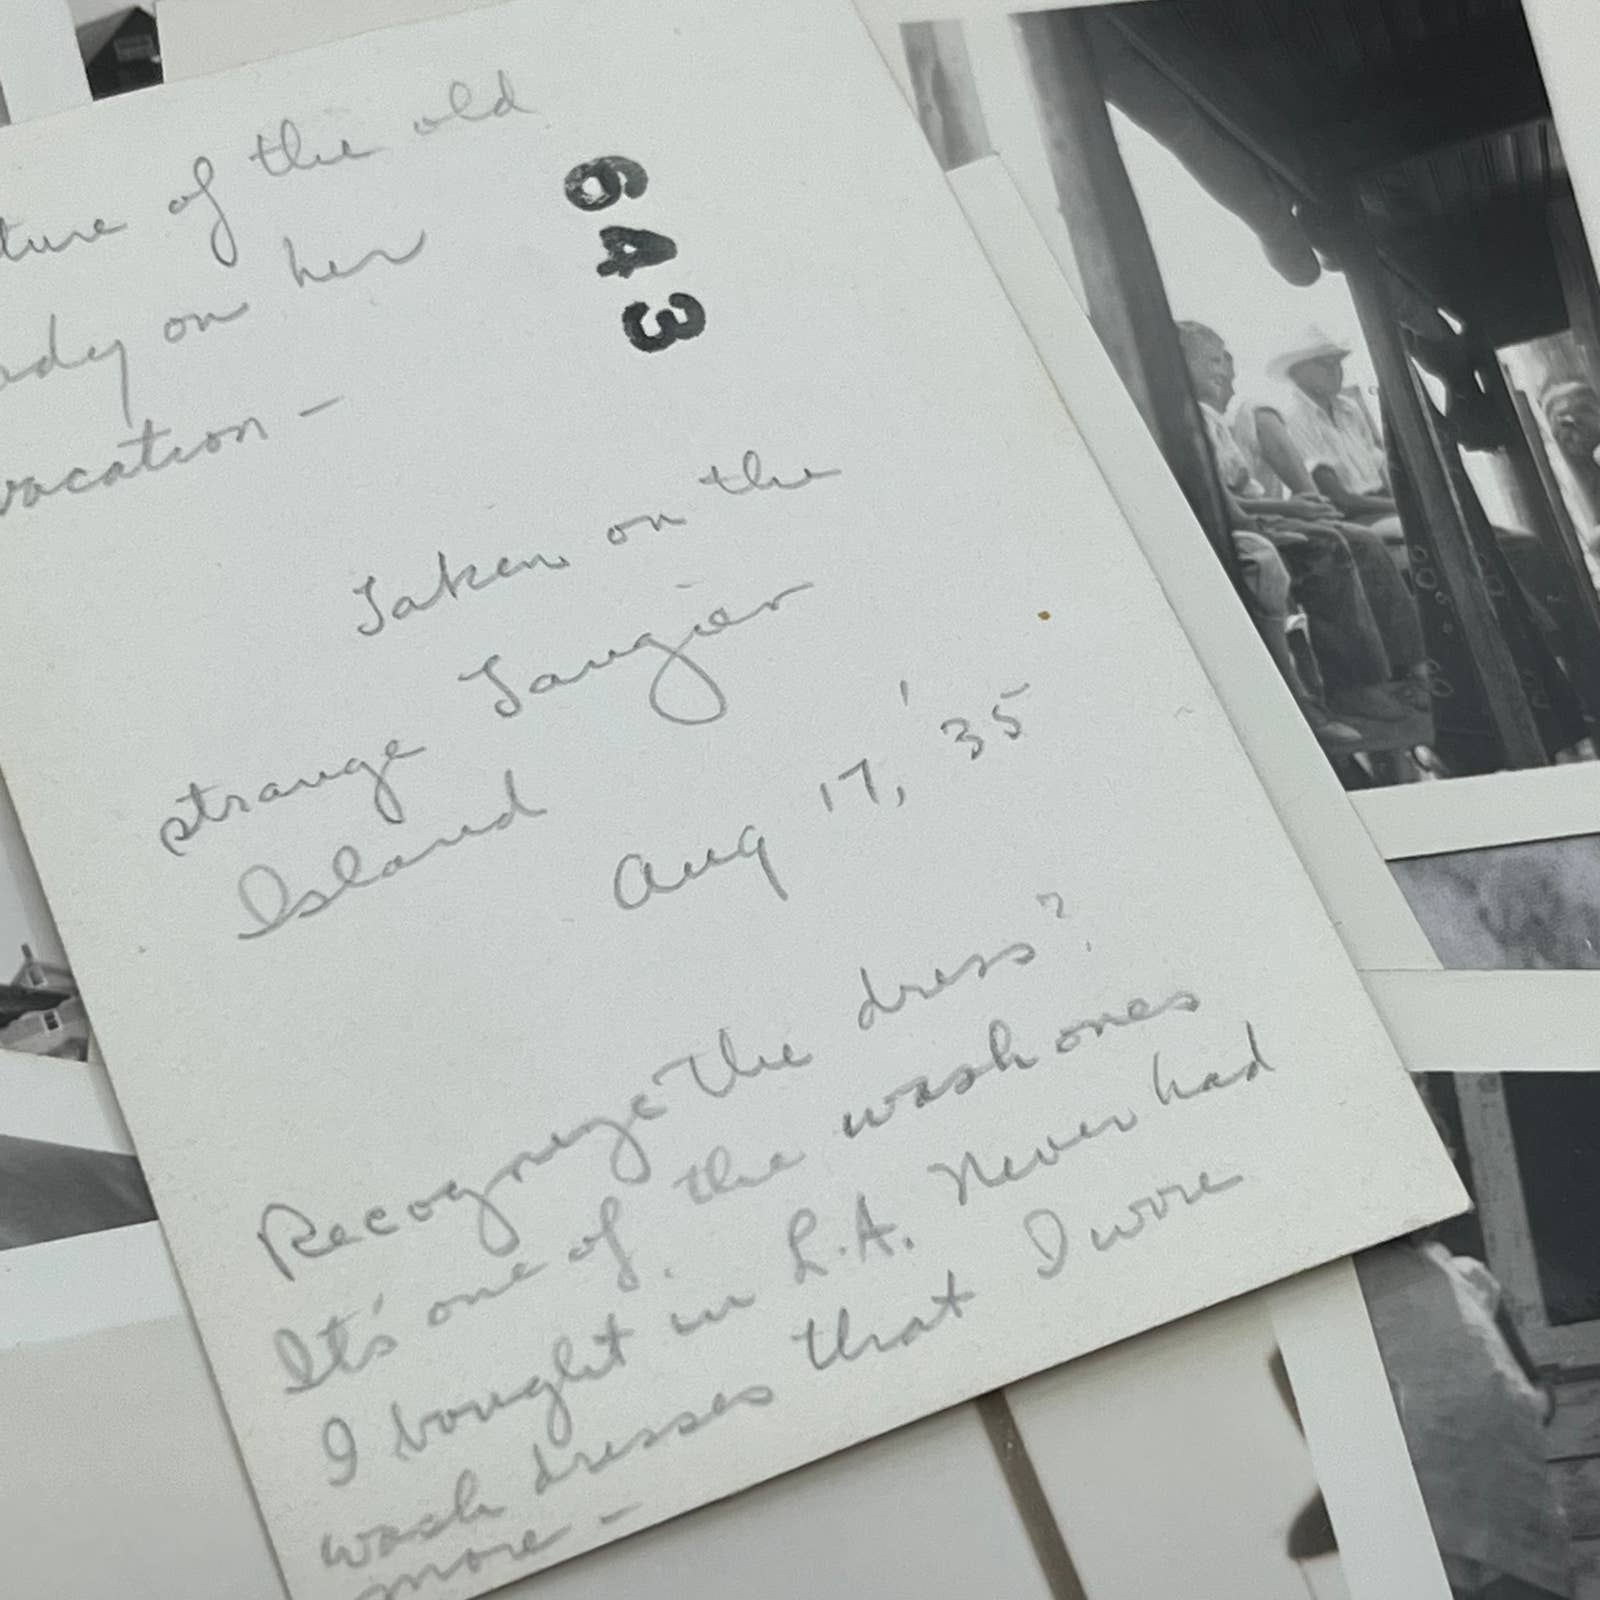 ture of the old
ady on her
vacation -
643
Taken on the
strange Tangier
Island Aug 17, '35
Recognize the dress?
It's one of the wash ones
I bought in L.A. Never had
wash dresses that I wore
more -